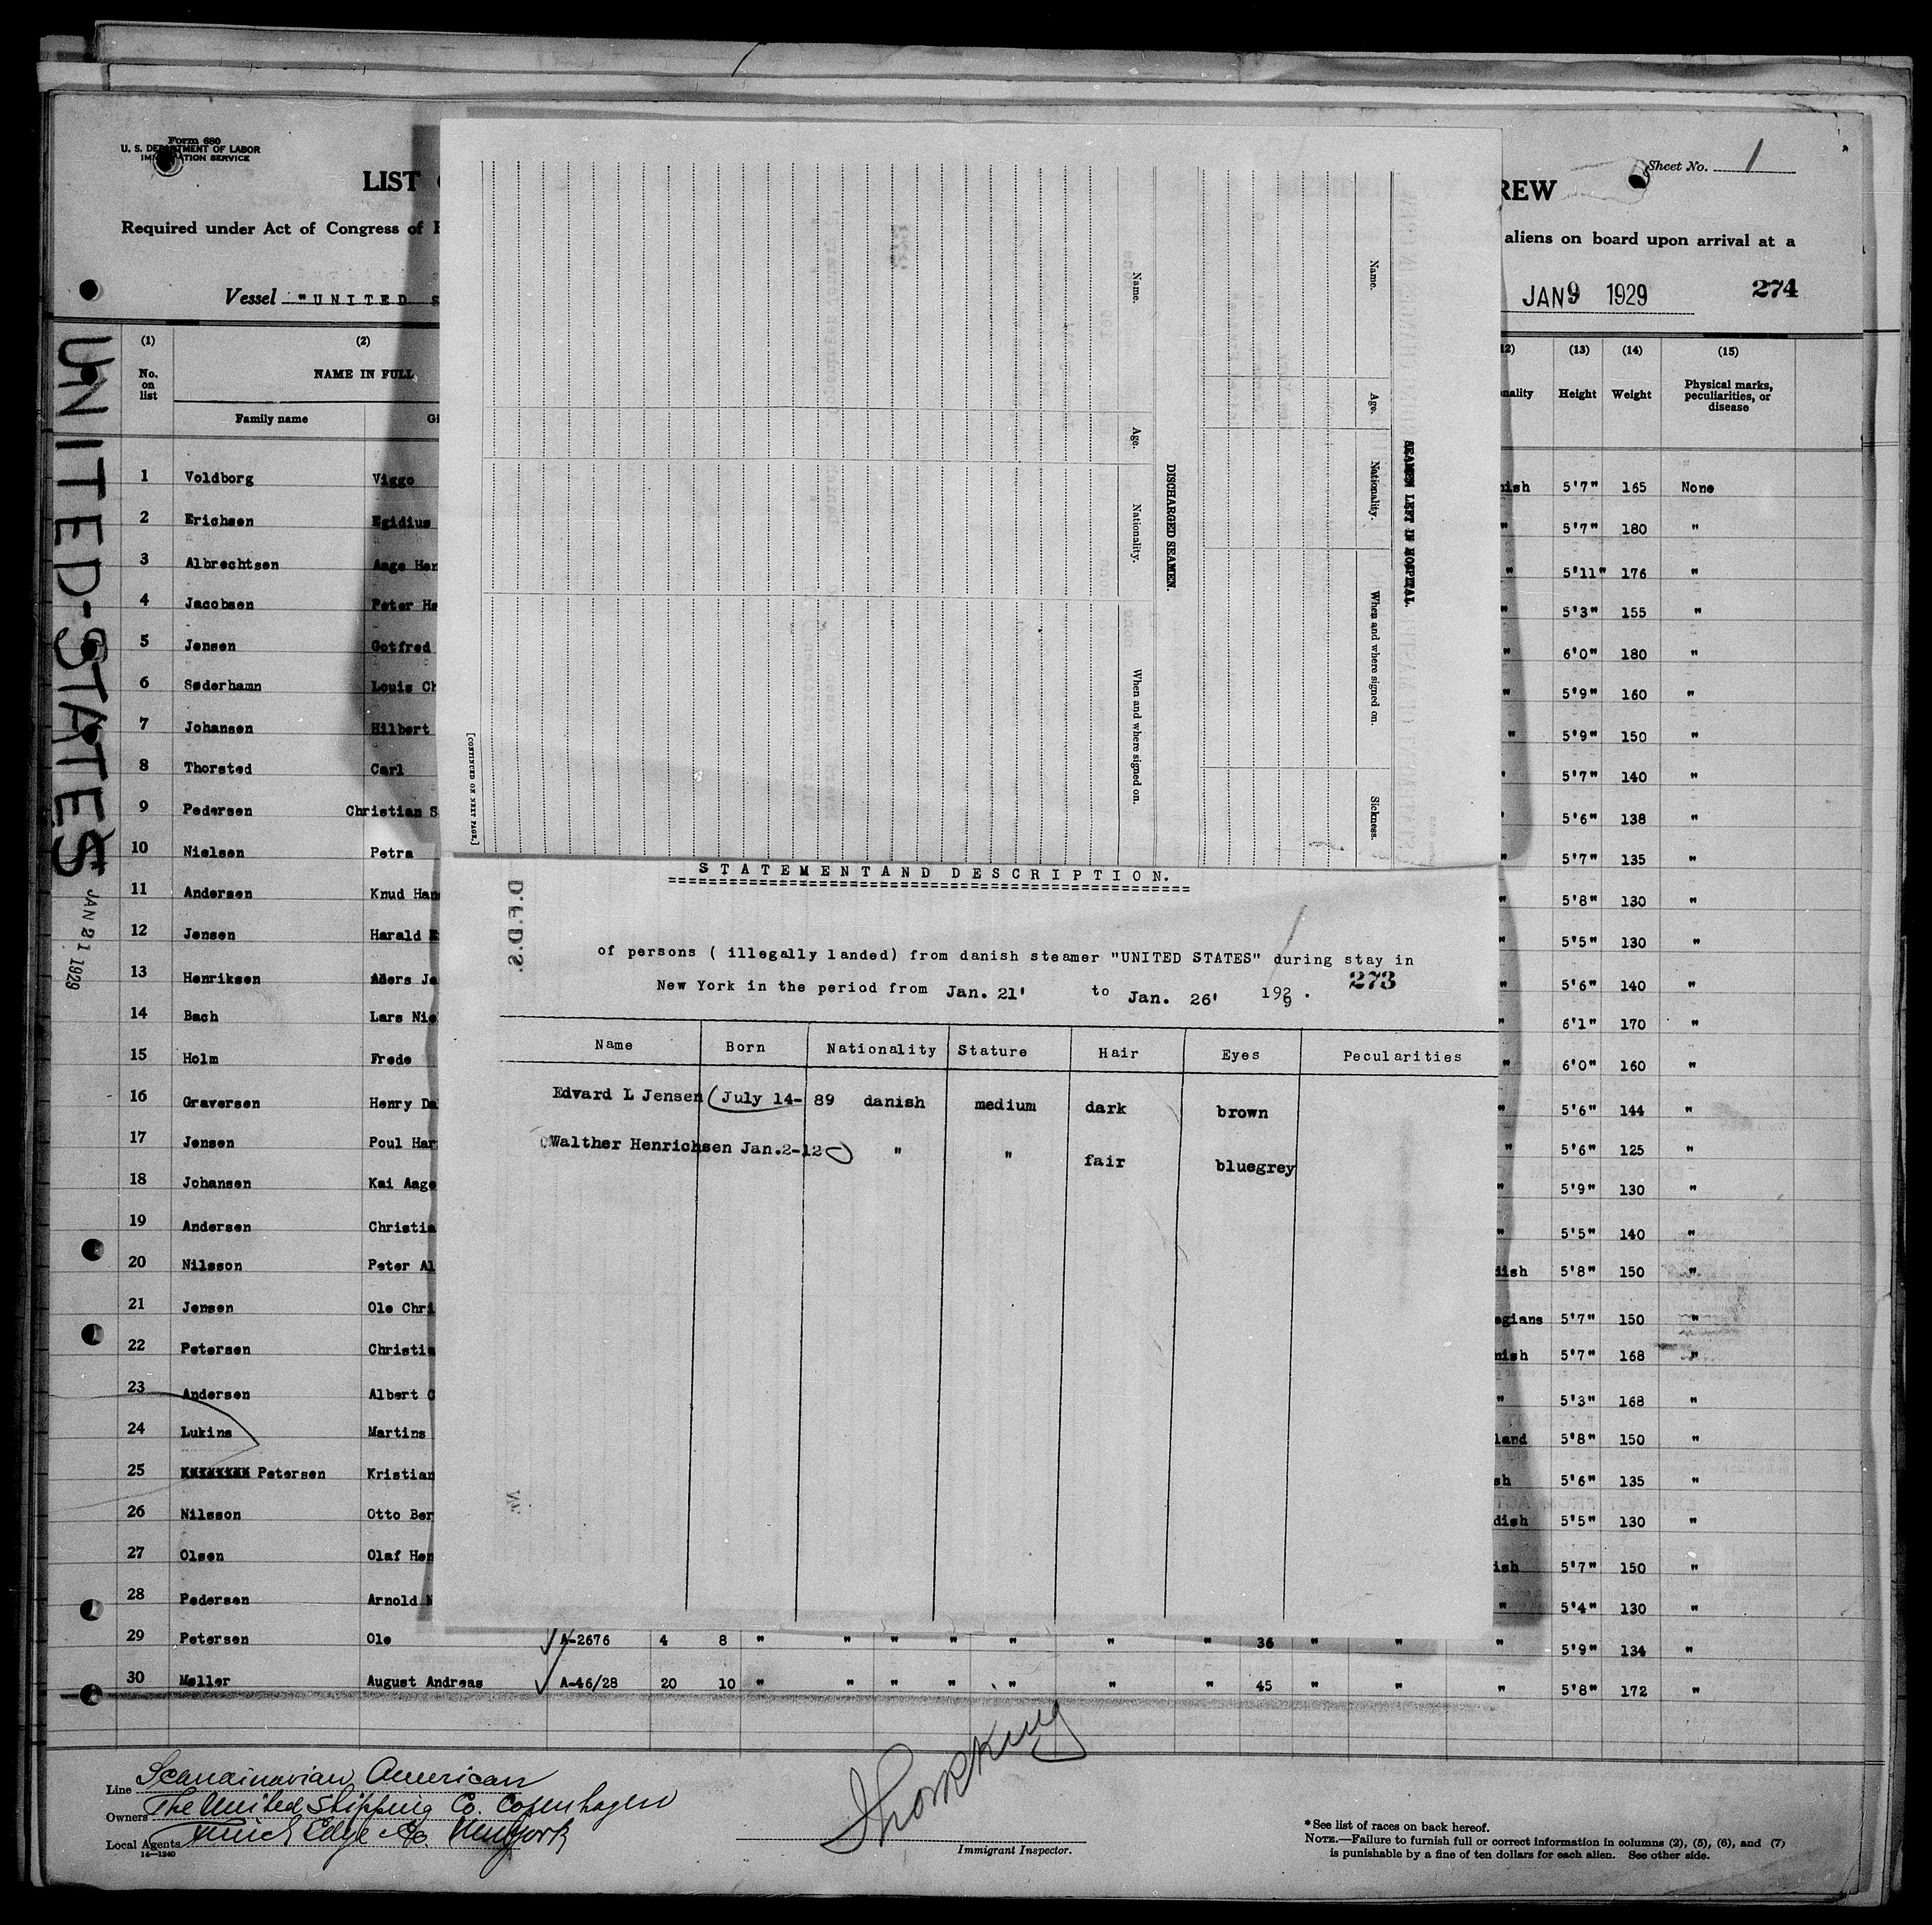 Form 680
U. S. DEPARTMENT OF LABOR
IMMIGRATION SERVICE
Sheet No. 1
LIST
REW
Required under Act of Congress of
aliens on board upon arrival at a
Vessel "UNITED S
JAN 9 1929
274
UNITED-STATES
JAN 21 1929
(1) (2) (13) (14) (15)
No. on list
NAME IN FULL
Family name
Height Weight Physical marks, peculiarities, or disease
1 Voldborg Viggo nish 5'7" 165 None
2 Erichsen Egidius " 5'7" 180 "
3 Albrechtsen Aage Hen " 5'11" 176 "
4 Jacobsen Peter Ha " 5'3" 155 "
5 Jensen Gotfred " 6'0" 180 "
6 Søderhamn Louis Ch " 5'9" 160 "
7 Johansen Hilbert " 5'9" 150 "
8 Thorsted Carl " 5'7" 140 "
9 Pedersen Christian S " 5'6" 138 "
10 Nielsen Petra " 5'7" 135 "
11 Andersen Knud Han " 5'8" 130 "
12 Jensen Harald " 5'5" 130 "
13 Henriksen Aders Je " 5'6" 140 "
14 Bach Lars Nie " 6'1" 170 "
15 Holm Frede " 6'0" 160 "
16 Graversen Henry Da " 5'6" 144 "
17 Jensen Poul Har " 5'6" 125 "
18 Johansen Kai Aage " 5'9" 130 "
19 Andersen Christia " 5'5" 140 "
20 Nilsson Peter Al dish 5'8" 150 "
21 Jensen Ole Chri egians 5'7" 150 "
22 Petersen Christia nish 5'7" 168 "
23 Andersen Albert C " 5'3" 168 "
24 Lukins Martins land 5'8" 150 "
25 Petersen Kristian sh 5'6" 135 "
26 Nilsson Otto Ber dish 5'5" 130 "
27 Olsen Olaf Hen ish 5'7" 150 "
28 Pedersen Arnold N " 5'4" 130 "
29 Petersen Ole A-2676 4 8 " " " " " " " 36 " " " 5'9" 134 "
30 Møller August Andreas A-46/28 20 10 " " " " " " " 45 " " " 5'8" 172 "
SEAMEN LEFT IN HOSPITAL.
Name. Age. Nationality. When and where signed on. Sickness.
DISCHARGED SEAMEN.
Name. Age. Nationality. When and where signed on.
[CONTINUED ON NEXT PAGE.]
STATEMENT AND DESCRIPTION.
D.F.D.S.
of persons ( illegally landed) from danish steamer "UNITED STATES" during stay in
New York in the period from Jan. 21' to Jan. 26' 1929.
273
Name Born Nationality Stature Hair Eyes Pecularities
Edvard L Jensen July 14-89 danish medium dark brown
Walther Henrichsen Jan.2-12 " " fair bluegrey
Line Scandinavian American
Owners The United Shipping Co. Copenhagen
Local Agents Edye Co. New York
14—1240
Immigrant Inspector.
*See list of races on back hereof.
NOTE.—Failure to furnish full or correct information in columns (2), (5), (6), and (7)
is punishable by a fine of ten dollars for each alien. See other side.